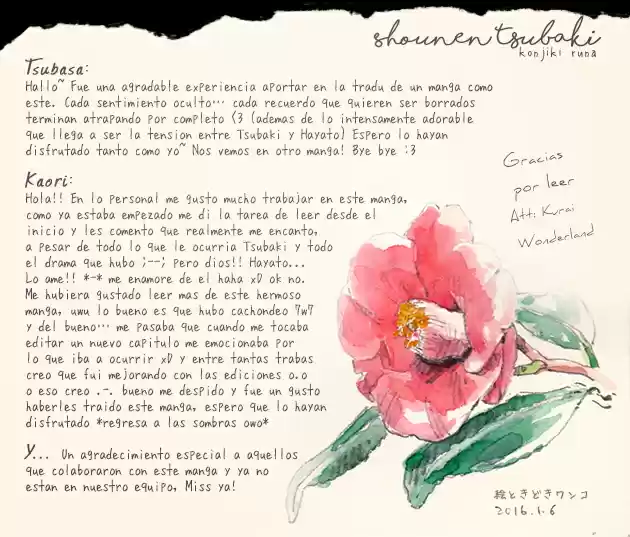 shounen tsubaki
konjiki runa
Tsubasa:
Hallo~ Fue una agradable experiencia aportar en la tradu de un manga como
este. Cada sentimiento oculto... cada recuerdo que quieren ser borrados
terminan atrapando por completo <3 (ademas de lo intensamente adorable
que llega a ser la tension entre Tsubaki y Hayato) Espero lo hayan
disfrutado tanto como yo~ Nos vemos en otro manga! Bye bye :3
Kaori:
Hola!! En lo personal me gusto mucho trabajar en este manga,
como ya estaba empezado me di la tarea de leer desde el
inicio y les comento que realmente me encanto,
a pesar de todo lo que le ocurria Tsubaki y todo
el drama que hubo ;--; Pero dios!! Hayato...
Lo ame!! *-* me enamore de el haha xD ok no.
Me hubiera gustado leer mas de este hermoso
manga, uwu lo bueno es que hubo cachondeo 7w7
y del bueno... me pasaba que cuando me tocaba
editar un nuevo capitulo me emocionaba por
lo que iba a ocurrir xD y entre tantas trabas
creo que fui mejorando con las ediciones o.o
o eso creo .-. bueno me despido y fue un gusto
haberles traido este manga, espero que lo hayan
disfrutado *regresa a las sombras owo*
Y... Un agradecimiento especial a aquellos
que colaboraron con este manga y ya no
estan en nuestro equipo, Miss ya!
Gracias
por leer
Att: Kurai
Wonderland
絵ときどきワンコ
2016.1.6